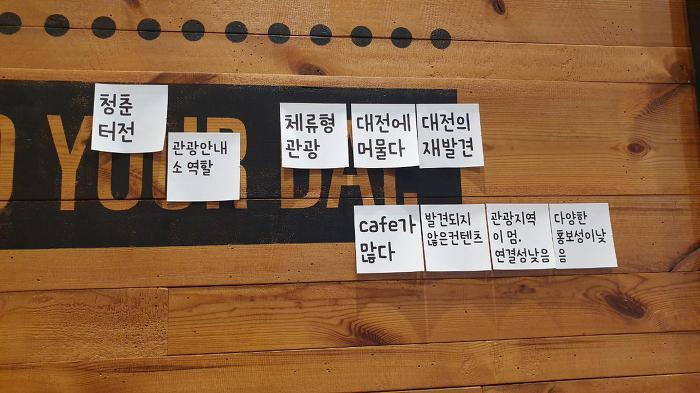 YOUR DA
청춘
터전
관광안내
소 역할
체류형
관광
대전에
머물다
대전의
재발견
cafe가
많다
발견되지
않은컨텐츠
관광지역
이 멈.
연결성낮음
다양한
홍보성이낮
음